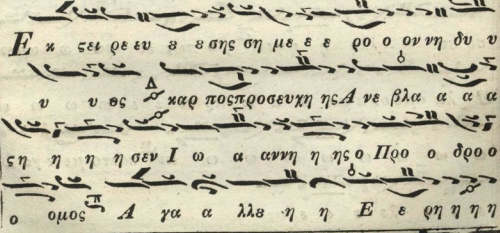 Εκ ςει ρε ευ ε ε σης ση με ε ε ρο ο ον νη δυ υ
υ υ ες Δ καρ πος προσευχη ης Α νε βλα α α α
ςη η η η σεν Ι ω α αννη η ης ο Προ ο δρο ο
ο ομος π Α γα α λλε η η Ε ε ρη η η η